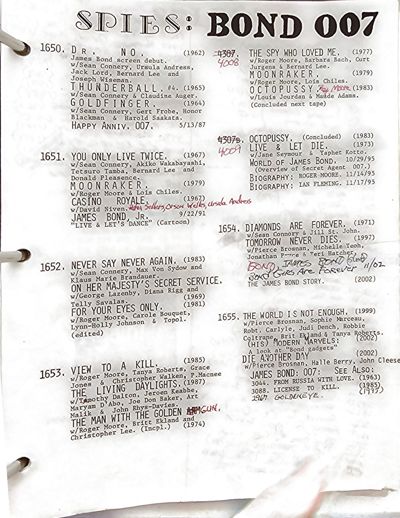 SPIES: BOND 007
1650. Dr. NO. (1962)
James Bond screen debut.
w/Sean Connery, Ursula Andress,
Jack Lord, Bernard Lee and
Joseph Wiseman.
THUNDERBALL. #4. (1965)
w/Sean Connery & Claudine Auger.
GOLDFINGER. (1964)
w/Sean Connery, Gert Frobe, Honor
Blackman & Harold Saakata.
HAPPY ANNIV. 007. 5/13/87
1651. YOU ONLY LIVE TWICE. (1967)
w/Sean Connery, Akiko Wakabayashi,
Tetsuro Tamba, Bernard Lee and
Donald Pleasence.
MOONRAKER. (1979)
w/Roger Moore & Lois Chiles.
CASINO ROYALE. (1967)
w/David Niven, Peter Sellers, Orson Welles, Ursula Andress
JAMES BOND, Jr. 9/22/91
"LIVE & LET'S DANCE" (Cartoon)
1652. NEVER SAY NEVER AGAIN. (1983)
w/Sean Connery, Max Von Sydow and
Klaus Marie Brandauer.
ON HER MAJESTY'S SECRET SERVICE.
w/George Lazenby, Diana Rigg and
Telly Savalas. (1969)
FOR YOUR EYES ONLY. (1981)
w/Roger Moore, Carole Bouquet,
Lynn-Holly Johnson & Topol.
(edited)
1653. VIEW TO A KILL. (1985)
w/Roger Moore, Tanya Roberts, Grace
Jones & Christopher Walken, P.Macnee
THE LIVING DAYLIGHTS. (1987)
w/Timothy Dalton, Jeroen Keabbe
Maryam D'Abo, Joe Don Baker, Art
Malik & John Rhys-Davies.
THE MAN WITH THE GOLDEN GUN.
w/Roger Moore, Britt Ekland and
Christopher Lee. (Incpl.) (1974)
4307. THE SPY WHO LOVED ME. (1977)
4008 w/Roger Moore, Barbara Bach, Curt
Jurgens & Bernard Lee.
MOONRAKER. (1979)
w/Roger Moore, Lois Chiles.
OCTOPUSSY. Roger Moore (1983)
w/Louis Jourdan & Maude Adams.
(Concluded next tape)
4307b. OCTOPUSSY. (Concluded) (1983)
4009 w/Jane Seymour & Yaphet Kotto.
LIVE & LET DIE. (1973)
WORLD OF JAMES BOND. 10/29/95
(Overview of Secret Agent 007.)
BIOGRAPHY: ROGER MOORE. 11/14/95
BIOGRAPHY: IAN FLEMING. 11/17/95
1654. DIAMONDS ARE FOREVER. (1971)
w/Sean Connery & Jill St. John.
TOMORROW NEVER DIES. (1997)
w/Pierce Brosnan, Michelle Yeoh,
Jonathan Pryce & Teri Hatcher.
BOND, JAMES BOND
BOND GIRLS ARE FOREVER 11/02
THE JAMES BOND STORY. (2002)
1655. THE WORLD IS NOT ENOUGH. (1999)
w/Pierce Brosnan, Sophie Marceau,
Robt. Carlyle, Judi Dench, Robbie
Coltrane
(HIS) MODERN MARVELS: (2002)
a look at "Bond gadgets"
DIE ANOTHER DAY (2002)
w/Pierce Brosnan, Halle Berry, John Cleese
JAMES BOND: 007: SEE ALSO:
3044. FROM RUSSIA WITH LOVE. (1963)
3088. LICENSE TO KILL. (1989)
GOLDENEYE. (1995)